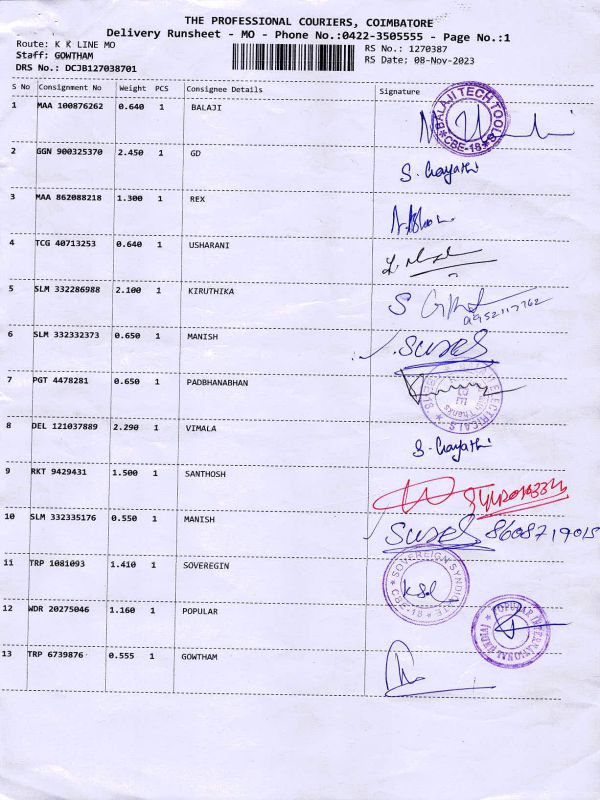 THE PROFESSIONAL COURIERS, COIMBATORE
Delivery Runsheet - MO - Phone No.:0422-3505555 - Page No.:1
Route: K K LINE MO
Staff: GOWTHAM
DRS No.: DCJB127038701
RS No.: 1270387
RS Date: 08-Nov-2023
S No Consignment No Weight PCS Consignee Details Signature
1 MAA 100876262 0.640 1 BALAJI
BALAJI TECH TOOLS
CBE-18
2 GGN 900325370 2.450 1 GD S. Gayathri
3 MAA 862088218 1.300 1 REX
4 TCG 40713253 0.640 1 USHARANI
5 SLM 332286988 2.100 1 KIRUTHIKA
9952117762
6 SLM 332332373 0.650 1 MANISH
7 PGT 4478281 0.650 1 PADBHANABHAN
ELECTRICALS
8 DEL 121037889 2.290 1 VIMALA S. Gayathri
9 RKT 9429431 1.500 1 SANTHOSH
10 SLM 332335176 0.550 1 MANISH 8608719015
11 TRP 1081093 1.410 1 SOVEREGIN
SOVEREIGN SYNDICATE
CBE-18
12 WDR 20275046 1.160 1 POPULAR
POPULAR INTERNATIONAL
13 TRP 6739876 0.555 1 GOWTHAM